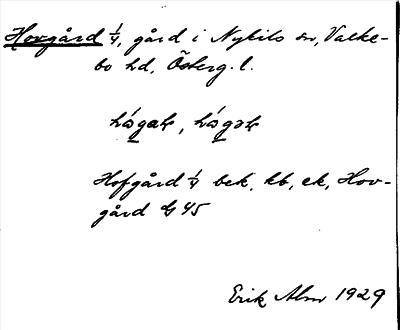 Hovgård 1/4, gård i Nykils sn, Valke-
bo hd, Österg. l.
Hofgård 1/4 bek, kb, ek, Hov-
gård G 45
Erik Alm 1929